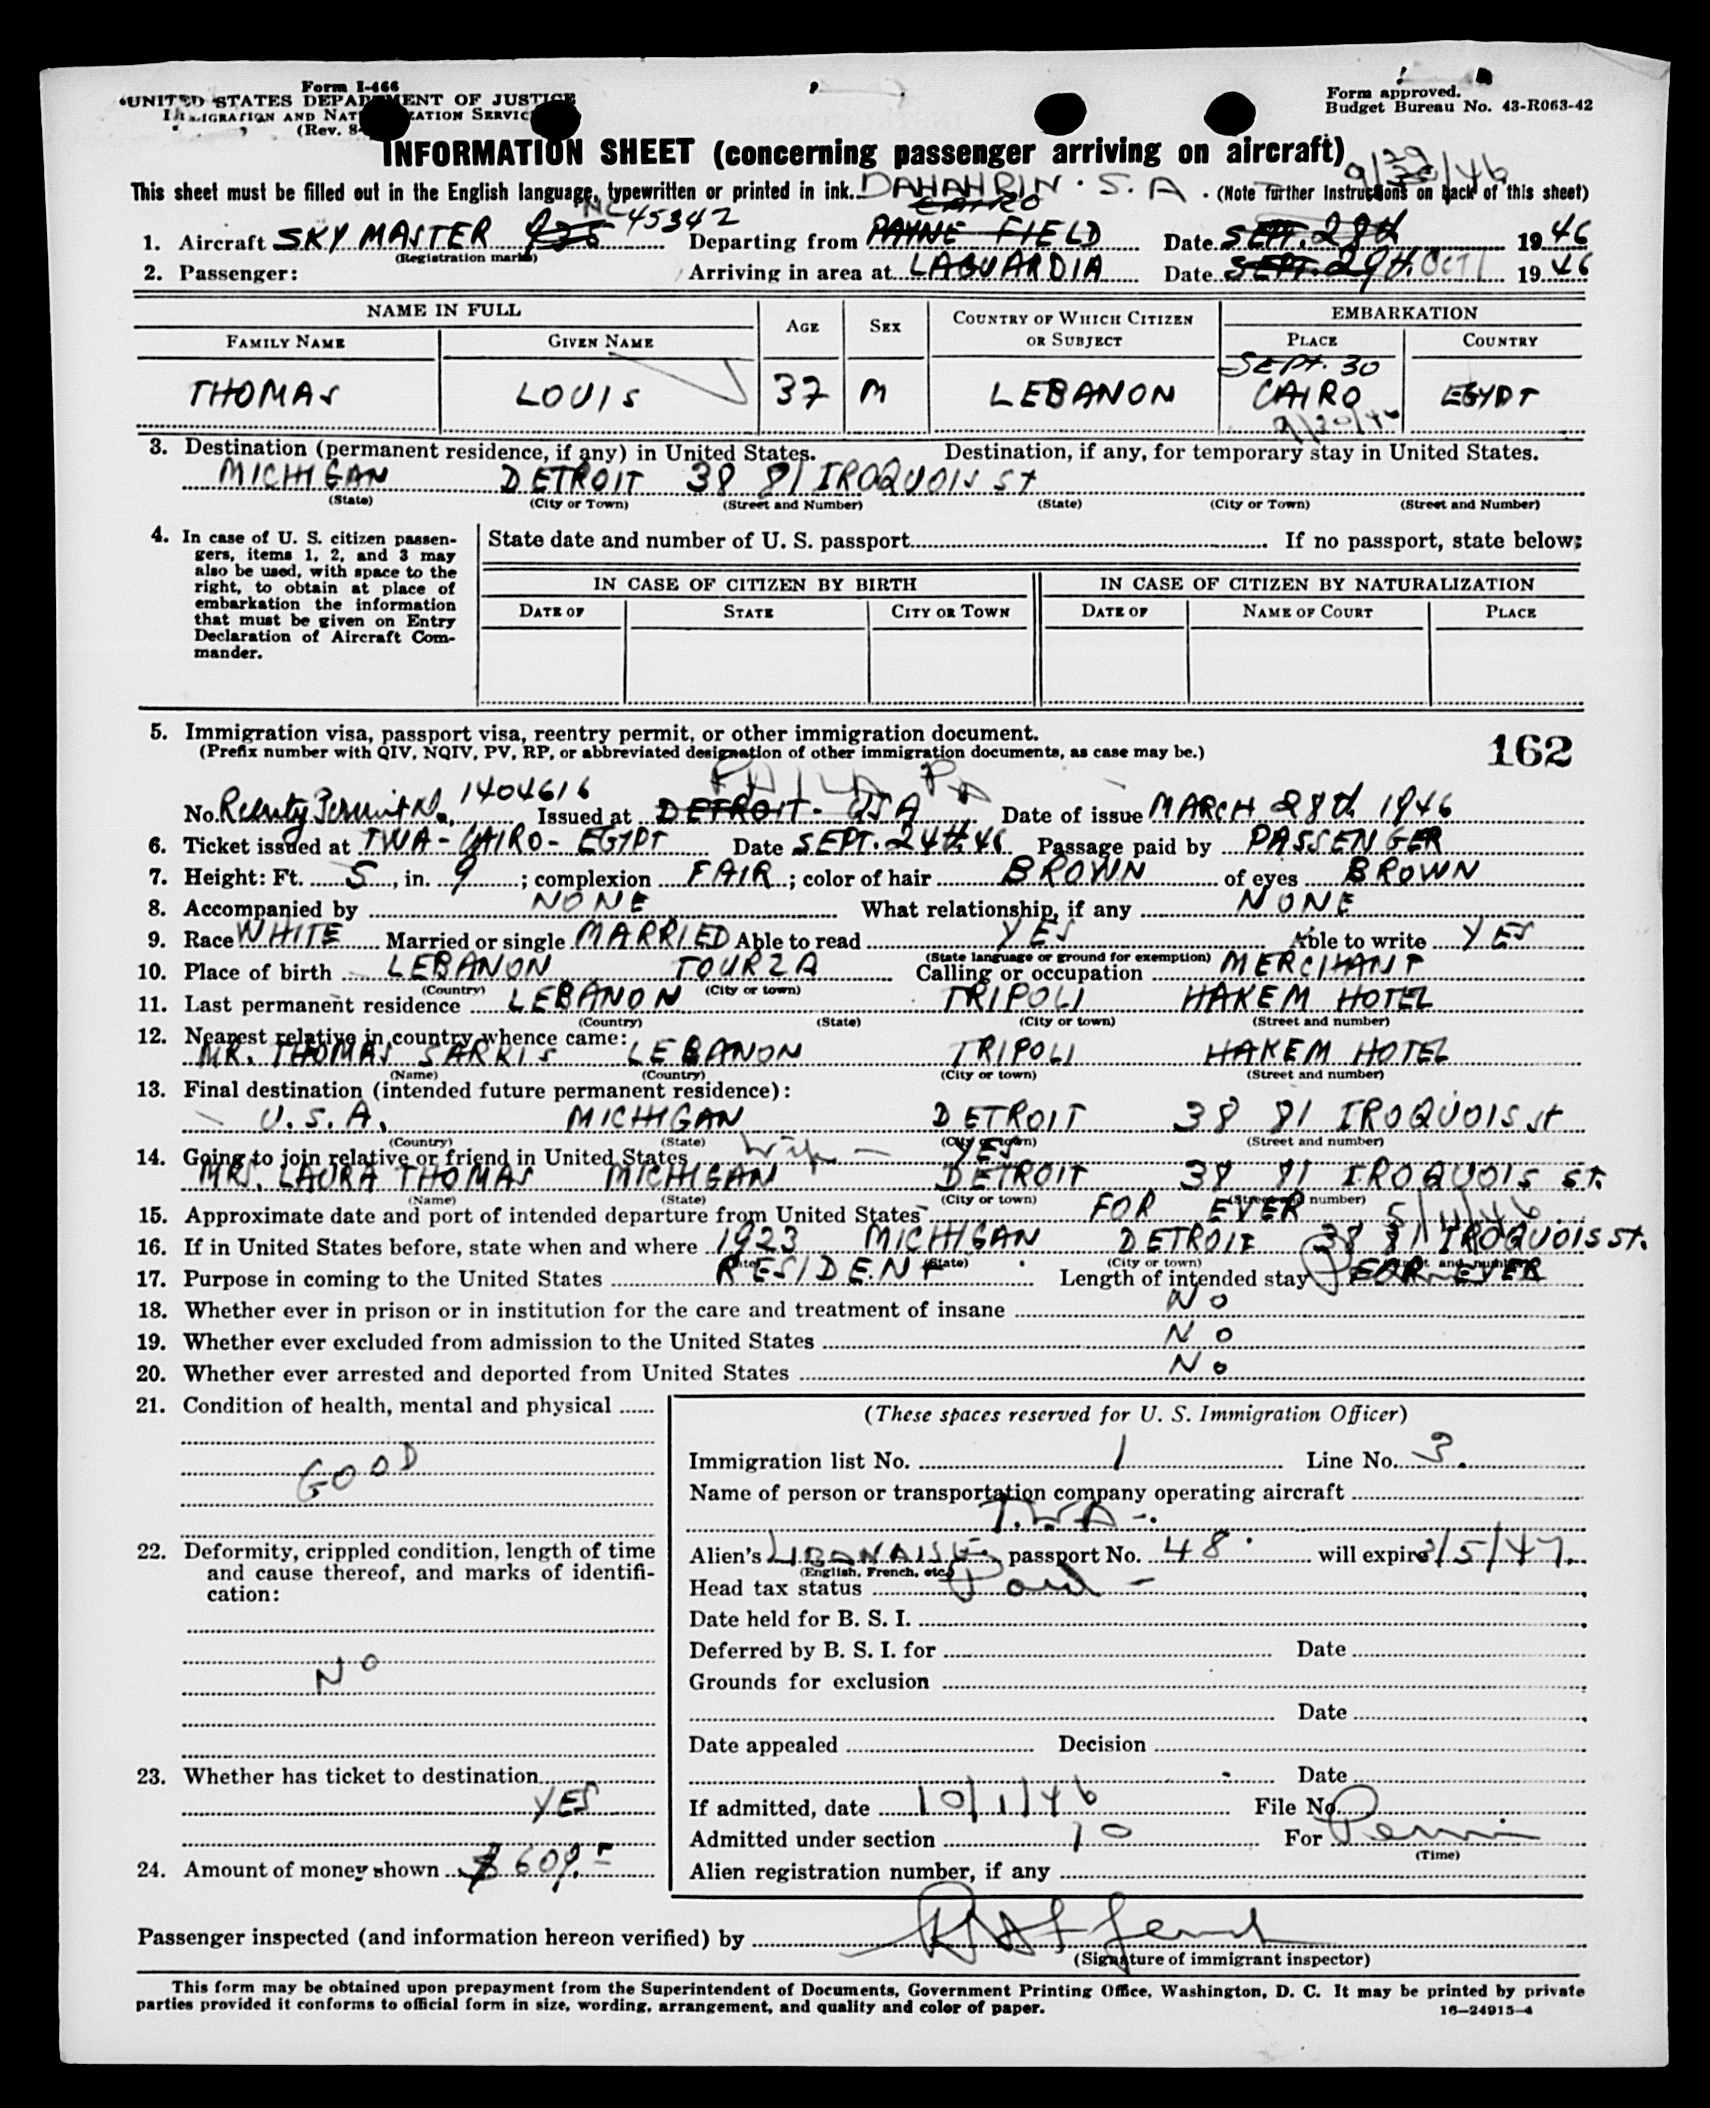 Form I-466
UNITED STATES DEPARTMENT OF JUSTICE
IMMIGRATION AND NATURALIZATION SERVICE
(Rev. 8-
Form approved.
Budget Bureau No. 43-R063-42
INFORMATION SHEET (concerning passenger arriving on aircraft)
9/30/46
This sheet must be filled out in the English language, typewritten or printed in ink. DAHAHRIN . S. A . (Note further Instructions on back of this sheet)
NC 45342 CAIRO
1. Aircraft SKY MASTER 925 Departing from PAYNE FIELD Date SEPT. 28th 1946
(Registration marks)
2. Passenger: Arriving in area at LAGUARDIA Date SEPT. 29th. OCT 1 1946
NAME IN FULL AGE SEX COUNTRY OF WHICH CITIZEN OR SUBJECT EMBARKATION
FAMILY NAME GIVEN NAME PLACE COUNTRY
SEPT. 30
THOMAS LOUIS 37 M LEBANON CAIRO EGYPT
9/30/46
3. Destination (permanent residence, if any) in United States. Destination, if any, for temporary stay in United States.
MICHIGAN DETROIT 38 81 IROQUOIS St
(State) (City or Town) (Street and Number) (State) (City or Town) (Street and Number)
4. In case of U. S. citizen passen-
gers, items 1, 2, and 3 may
also be used, with space to the
right, to obtain at place of
embarkation the information
that must be given on Entry
Declaration of Aircraft Com-
mander.
State date and number of U. S. passport If no passport, state below:
IN CASE OF CITIZEN BY BIRTH IN CASE OF CITIZEN BY NATURALIZATION
DATE OF STATE CITY OR TOWN DATE OF NAME OF COURT PLACE
5. Immigration visa, passport visa, reentry permit, or other immigration document.
(Prefix number with QIV, NQIV, PV, RP, or abbreviated designation of other immigration documents, as case may be.)
162
PHILA PA
No. Reentry Permit No. 1404616 Issued at DETROIT - USA Date of issue MARCH 28th 1946
6. Ticket issued at TWA - CAIRO - EGYPT Date SEPT. 24th 46 Passage paid by PASSENGER
7. Height: Ft. 5, in. 9; complexion FAIR; color of hair BROWN of eyes BROWN
8. Accompanied by NONE What relationship, if any NONE
9. Race WHITE Married or single MARRIED Able to read YES Able to write YES
(State language or ground for exemption)
10. Place of birth LEBANON TOURZA Calling or occupation MERCHANT
(Country) (City or town)
11. Last permanent residence LEBANON TRIPOLI HAKEM HOTEL
(Country) (State) (City or town) (Street and number)
12. Nearest relative in country whence came:
MR. THOMAS SARKIS LEBANON TRIPOLI HAKEM HOTEL
(Name) (Country) (City or town) (Street and number)
13. Final destination (intended future permanent residence):
U.S.A. MICHIGAN DETROIT 38 81 IROQUOIS St
(Country) (State) (City or town) (Street and number)
14. Going to join relative or friend in United States Wife - YES
MRS. LAURA THOMAS MICHIGAN DETROIT 38 81 IROQUOIS ST.
(Name) (State) (City or town) (Street and number)
15. Approximate date and port of intended departure from United States FOR EVER
16. If in United States before, state when and where 1923 MICHIGAN DETROIT 38 81 IROQUOIS ST.
(Date) (State) (City or town) (Street and number)
17. Purpose in coming to the United States RESIDENT Length of intended stay FOR EVER
18. Whether ever in prison or in institution for the care and treatment of insane NO
19. Whether ever excluded from admission to the United States NO
20. Whether ever arrested and deported from United States NO
21. Condition of health, mental and physical
GOOD
22. Deformity, crippled condition, length of time
and cause thereof, and marks of identifi-
cation:
NO
23. Whether has ticket to destination
YES
24. Amount of money shown $ 609.
(These spaces reserved for U. S. Immigration Officer)
Immigration list No. 1 Line No. 3.
Name of person or transportation company operating aircraft
T.W.A -.
Alien's LIBANAISE passport No. 48 will expire 3/5/47
(English, French, etc.)
Head tax status Paid -
Date held for B. S. I.
Deferred by B. S. I. for Date
Grounds for exclusion
Date
Date appealed Decision
Date
If admitted, date 10/1/46 File No.
Admitted under section 10 For Perm
(Time)
Alien registration number, if any
Passenger inspected (and information hereon verified) by
(Signature of immigrant inspector)
This form may be obtained upon prepayment from the Superintendent of Documents, Government Printing Office, Washington, D. C. It may be printed by private
parties provided it conforms to official form in size, wording, arrangement, and quality and color of paper.
16-24915-4